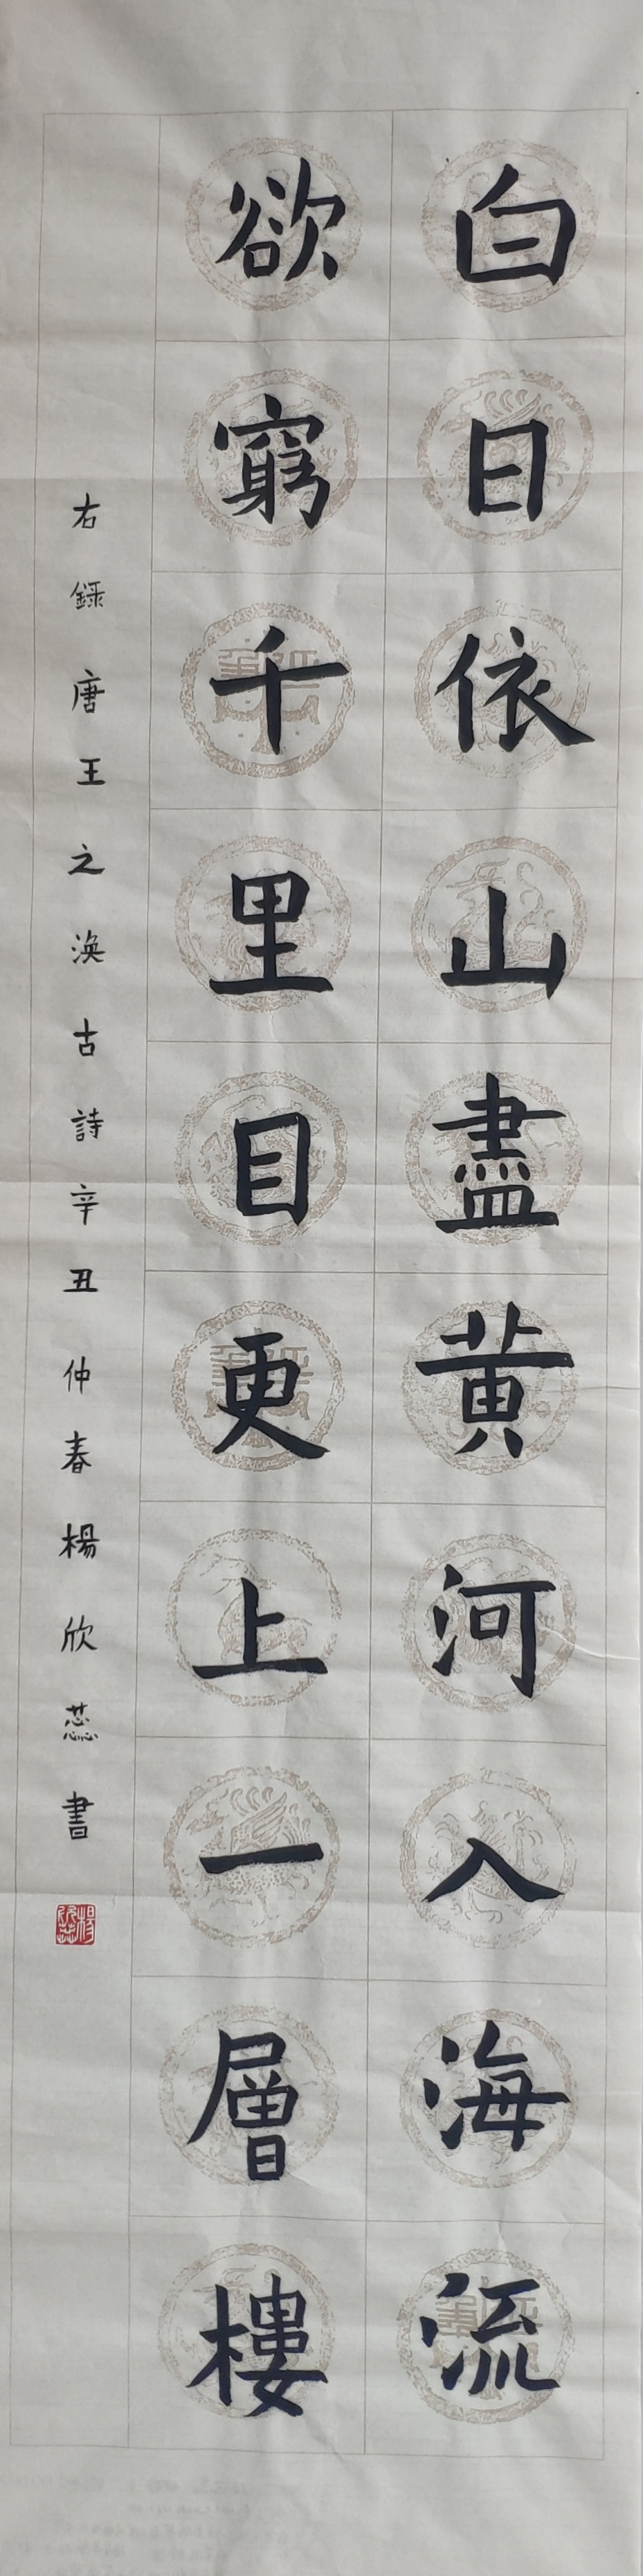 白日依山盡黄河入海流
欲窮千里目更上一層樓
右録唐王之渙古詩辛丑仲春楊欣蕊書